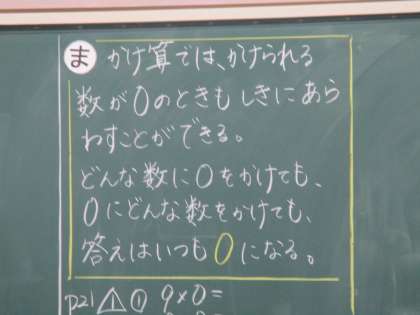 ま かけ算では、かけられる
数が0のときも しきにあら
わすことができる。
どんな数に0をかけても、
0にどんな数をかけても、
答えはいつも0になる。
P21 ① 9×0=